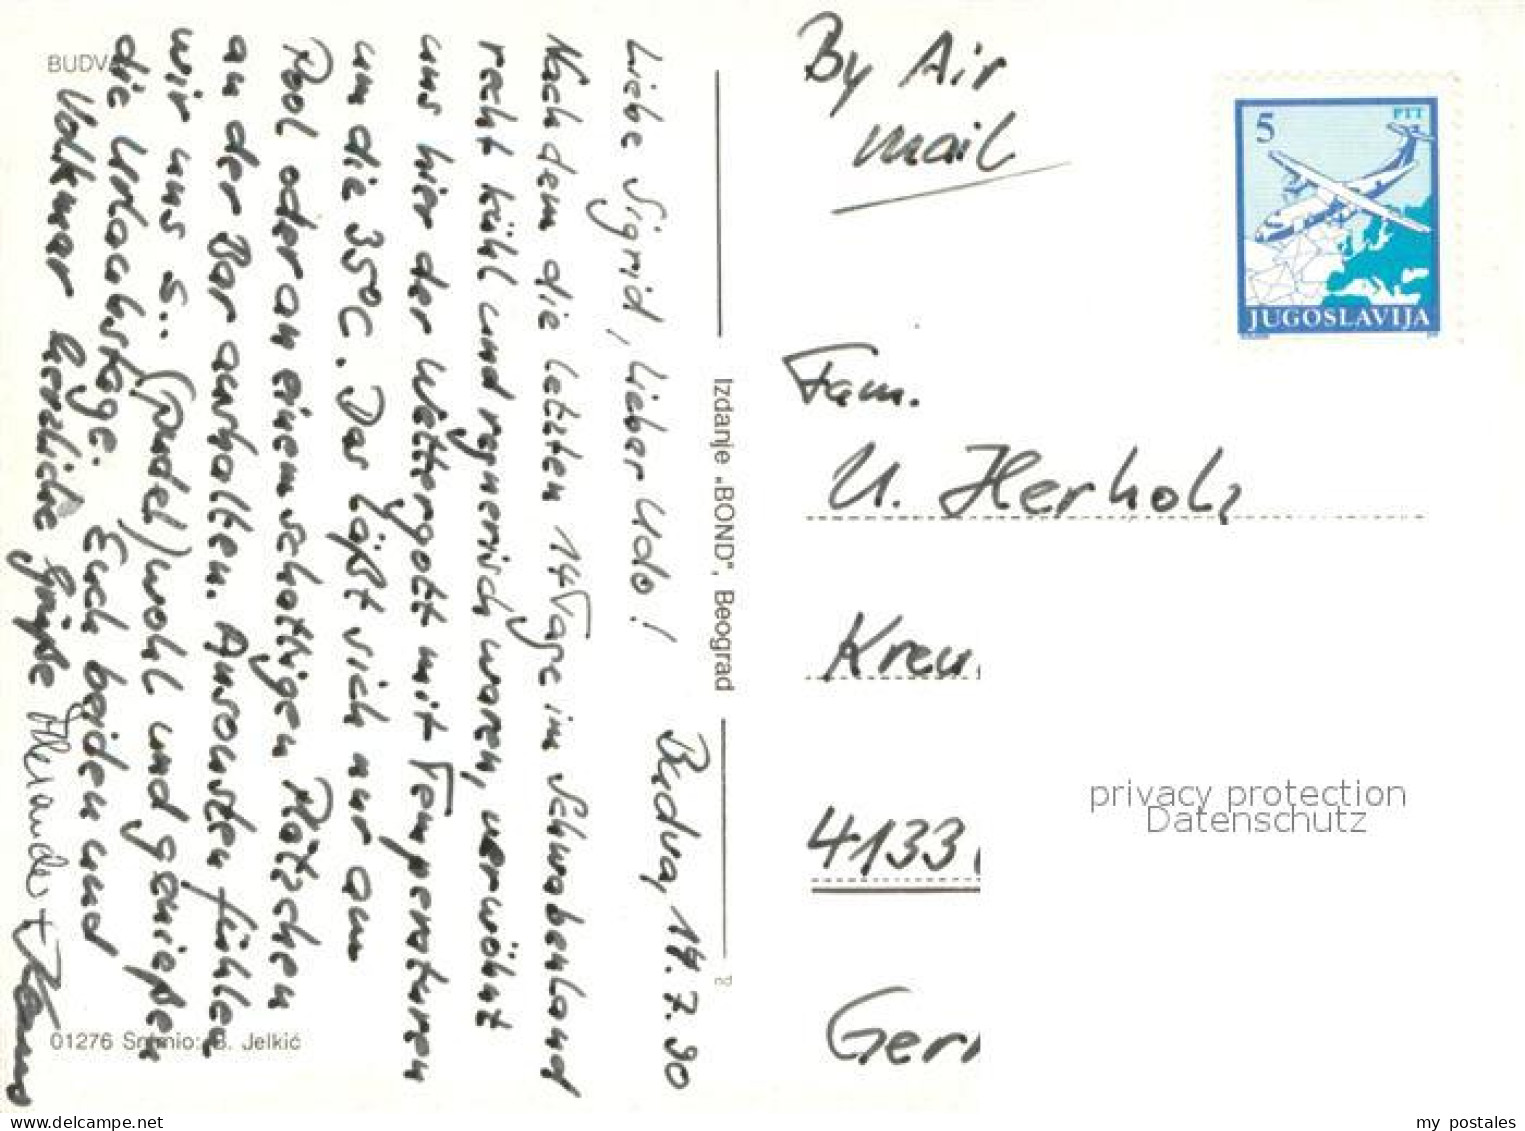 BUDVA
Budva, 14.7.90
Liebe Sigrid, lieber Udo!
Nachdem die letzten 14 Tage im Schwabenland
recht kühl und regnerisch waren, verwöhnt
uns hier der Wettergott mit Temperaturen
um die 35°C. Das läßt sich nur am
Pool oder an einem schattigen Plätzchen
an der Bar aushalten. Ansonsten fühlen
wir uns s... (pudel) wohl und genießen
die Urlaubstage. Euch beiden und
Volkmar herzliche Grüße Alexander +
01276 Snimio: B. Jelkić
Izdanje „BOND", Beograd
By Air
mail
5
PTT
JUGOSLAVIJA
Fam.
U. Herholz
Kreu
4133
Ger
privacy protection
Datenschutz
my postales